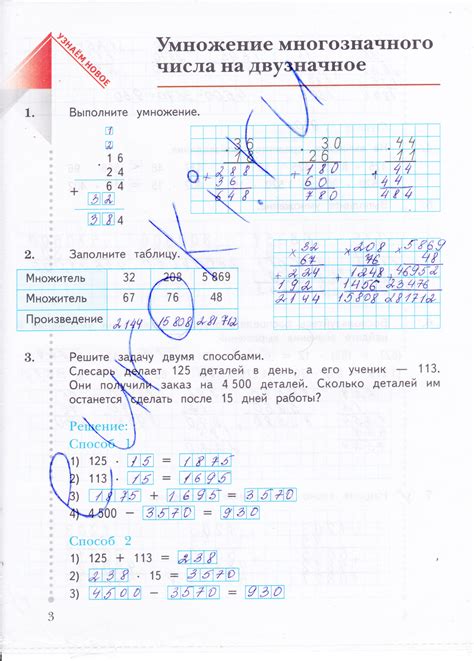 УЗНАЁМ НОВОЕ
Умножение многозначного
числа на двузначное
1. Выполните умножение.
1
2
· 16 · 36 · 30 · 44
24 18 26 11
+ 64 + 288 + 180 + 44
32 36 60 44
384 648 780 484
2. Заполните таблицу.
Множитель 32 208 5 869
Множитель 67 76 48
Произведение 2144 15 808 281 712
× 32 × 208 × 5869
67 76 48
+ 224 + 1248 + 46952
192 1456 23476
2144 15808 281712
3. Решите задачу двумя способами.
Слесарь делает 125 деталей в день, а его ученик — 113.
Они получили заказ на 4 500 деталей. Сколько деталей им
останется сделать после 15 дней работы?
Решение:
Способ 1
1) 125 · 15 = 1875
2) 113 · 15 = 1695
3) 1875 + 1695 = 3570
4) 4 500 − 3570 = 930
Способ 2
1) 125 + 113 = 238
2) 238 · 15 = 3570
3) 4500 − 3570 = 930
3